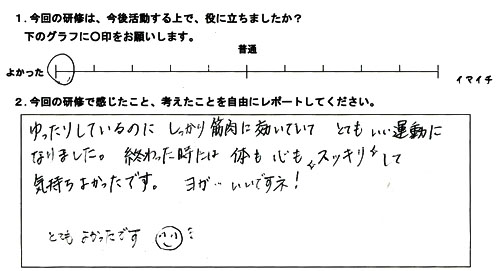 1.今回の研修は、今後活動する上で、役に立ちましたか?
下のグラフに〇印をお願いします。
普通
よかった
イマイチ
2.今回の研修で感じたこと、考えたことを自由にレポートしてください。
ゆったりしているのに しっかり筋肉に効いていて とてもいい運動に
なりました。 終わった時には 体も心も〝スッキリ〟して
気持ちよかったです。 ヨガ… いいですネ!
とても よかったです